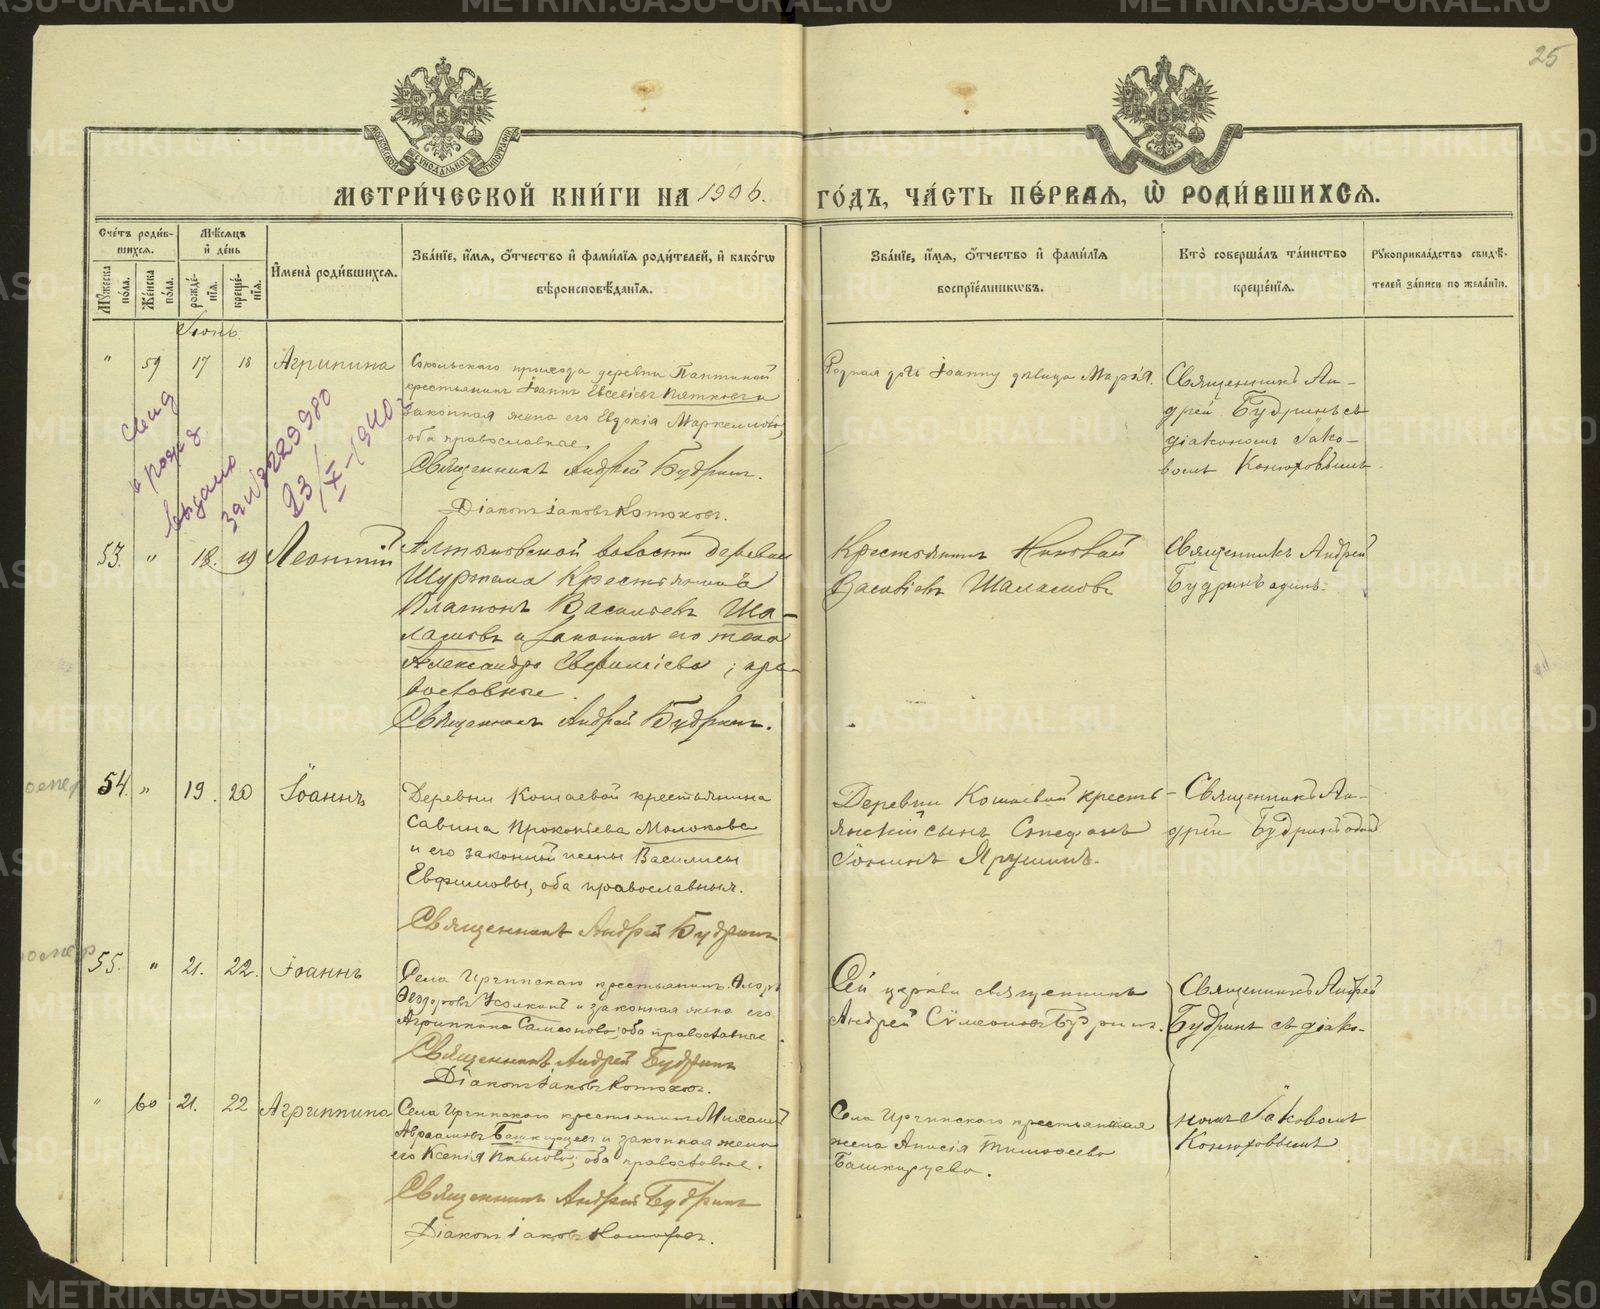 25
МОСКОВСКОЙ СѴНОДАЛЬНОЙ ТИПОГРАФІИ
МЕТРИ́ЧЕСКОЙ КНИ́ГИ НА 1906.
ГО́ДЪ, ЧА́СТЬ ПЕ́РВАЯ, Ѽ РОДИ́ВШИХСЯ.
Сче́тъ роди́в-
шихся.
Мѣ́сяцъ
и҆ де́нь
Мꙋ́жеска
по́ла.
Же́нска
по́ла.
рожде́-
нїя.
креще́-
нїя.
И҆мена̀ роди́вшихся.
Зва́нїе, и҆́мя, ѻ҆́тчество и҆ фами́лїя роди́телей, и҆ како́гѡ
вѣроисповѣ́данїя.
Зва́нїе, и҆́мя, ѻ҆́тчество и҆ фами́лїя
воспрїе́мникѡвъ.
Кто̀ соверша́лъ та́инство
креще́нїя.
Рꙋкоприкла́дство свидѣ́-
телей за́писи по жела́нїю.
Іюнь.
" 59 17 18 Агрипина
Сокольскаго прихода деревни Пантиной
крестьянинъ Іоаннъ Евсевіевъ Пятковъ и
законная жена его Евдокія Маркеллова,
оба православные.
Священникъ Андрей Будринъ.
Діаконъ Іаковъ Конюховъ.
Родная дочь Іоанну дѣвица Марія.
Священникъ Ан-
дрей Будринъ съ
діакономъ Іако-
вомъ Конюховымъ.
свид
о рожд
выдано
23/X-1940 г
53. " 18. 19 Леонтій
Алтыновской волости деревни
Шуртана крестьянинъ
Платонъ Васильевъ Ша-
лашовъ и законная его жена
Александра Евфиміева; пра-
вославные
Священникъ Андрей Будринъ.
Крестьянинъ Николай
Васильевъ Шалашовъ
Священникъ Андрей
Будринъ одинъ.
54. " 19. 20 Іоаннъ
Деревни Кошаевой крестьянина
Савина Прокопіева Молокова
и его законной жены Василисы
Евфимовы, оба православныя.
Священникъ Андрей Будринъ
Деревни Кошаевой кресть-
янскій сынъ Стефанъ
Іонинъ Ярушинъ.
Священникъ Ан-
дрей Будринъ одинъ
55. " 21. 22. Іоаннъ
Села Иргинскаго крестьянинъ Флоръ
Ѳедоровъ Усолкинъ и законная жена его
Агриппина Самсонова; оба православные.
Священникъ Андрей Будринъ
Діаконъ Іаковъ Конюховъ.
Сей церкви священникъ
Андрей Сѵмеоновъ Будринъ.
Священникъ Андрей
Будринъ съ діако-
" 60 21. 22 Агриппина
Села Иргинскаго крестьянинъ Михаилъ
Авраамовъ Башкирцевъ и законная жена
его Ксенія Павлова; оба православные.
Священникъ Андрей Будринъ
Діаконъ Іаковъ Конюховъ.
Села Иргинскаго крестьянская
жена Анисія Тимофеева
Башкирцева.
номъ Іаковомъ
Конюховымъ
METRIKI.GASO-URAL.RU